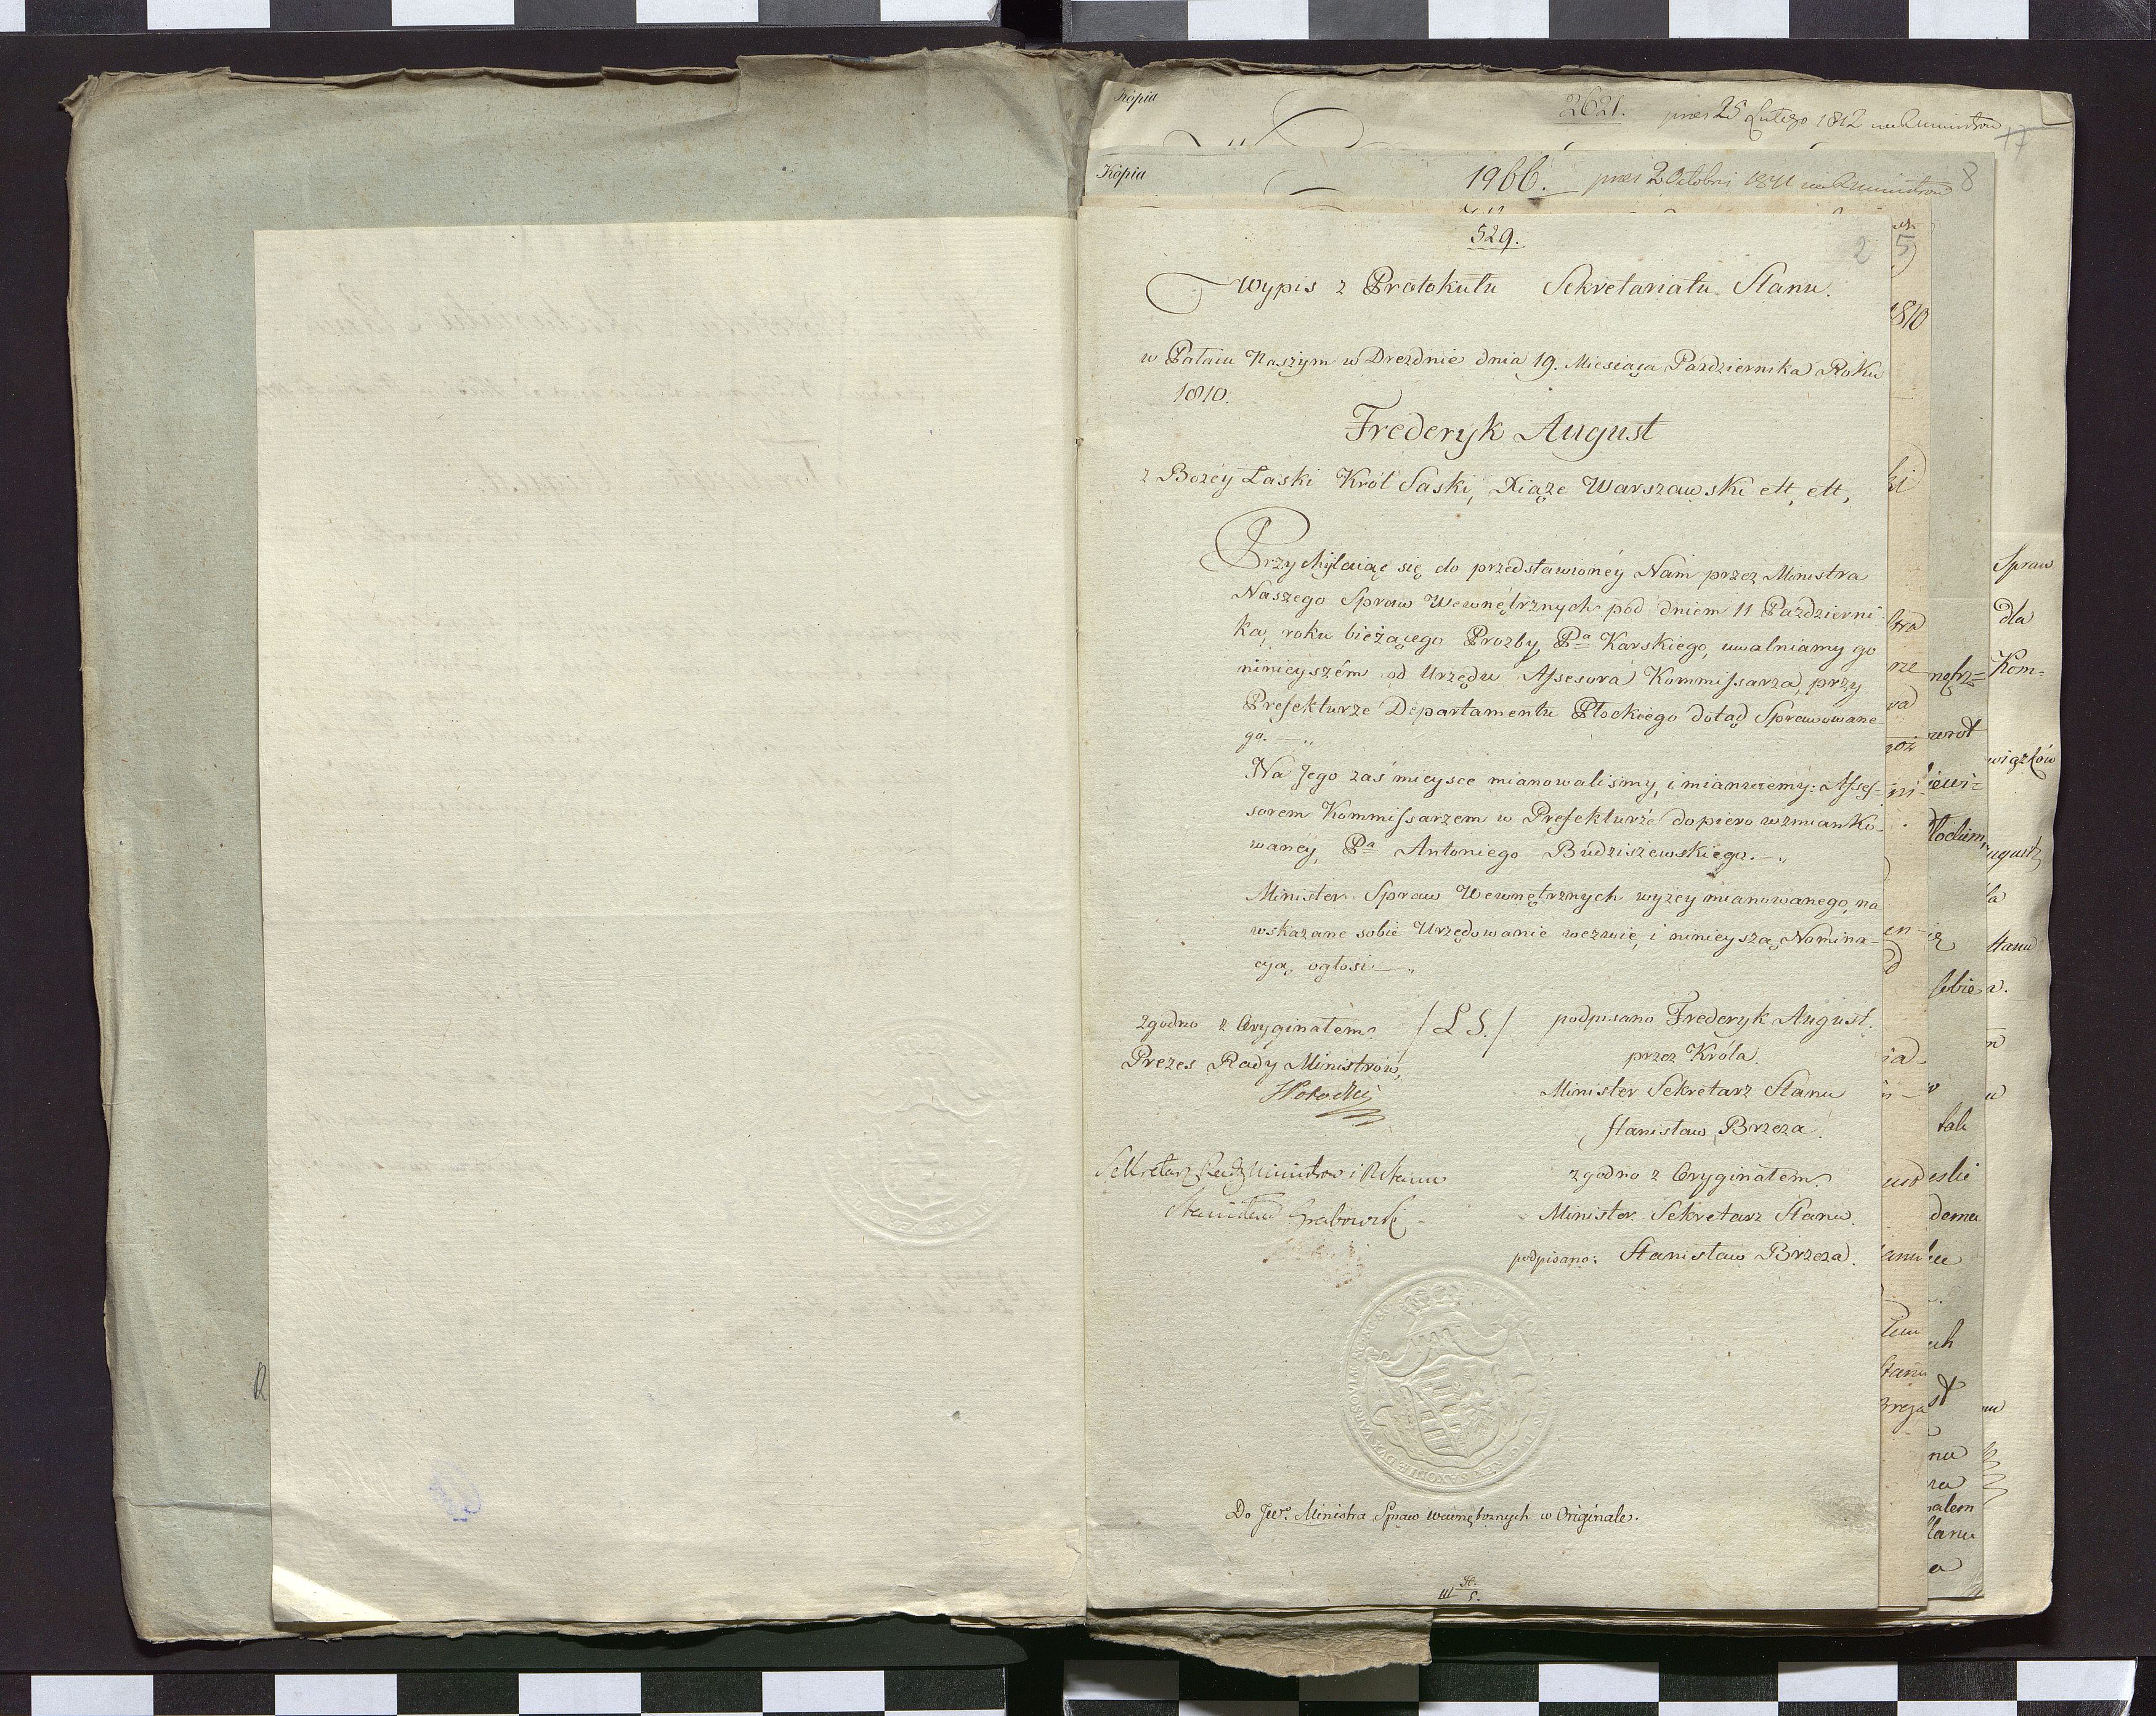 Kopia
2621. pres 25 Lutego 1812 17
Kopia
1966. pres 2 Octobri 1811 8
529.
2
5
Wypis z Protokułu Sekretariatu Stanu.
1810
w Pałacu Naszym w Dreznie dnia 19. Miesiąca Pazdziernika Roku
1810.
Frederyk August
z Bozey Łaski Król Saski, Xiąze Warszawski ett, ett,
Przychylaiąc się do przedstawioney Nam przez Ministra
Naszego Spraw Wewnętrznych pod dniem 11 Październi-
ka, roku bieżącego Prozby, Pa Karskiego, uwalniamy go
ninieyszém od Urzędu Assesora Kommissarza, przy
Prefekturze Departamentu Płockiego dotąd Sprawowane
go. —„
Na Jego zaś mieysce mianowaliśmy, i mianuiemy: Asses-
sorem Kommissarzem w Prefekturze dopiero wzmianko-
waney, Pa Antoniego Budziszewskiego. —„
Minister Spraw Wewnętrznych wyzey mianowanego, na
wskazane sobie Urzędowanie wezwie, i ninieyszą, Nomina-
cyą, ogłosi —„
zgodno z Oryginałem. /L.S./ podpisano Frederyk August.
Prezes Rady Ministrów, przez Króla.
Minister Sekretarz Stanu
Stanisław Brzeza.
Sekretarz Rady Ministrow i R. Stanu zgodno z Oryginałem.
Stanisław Grabowski Minister Sekretarz Stanu.
podpisano: Stanisław Brzeza.
REX SAXONIÆ DUX VARSOVIÆ
Do JW. Ministra Spraw wewnętrznych w Originale.
Spraw
dla
Kom-